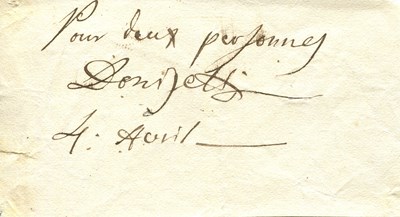 Pour deux personnes
Donizetti
4. Avril